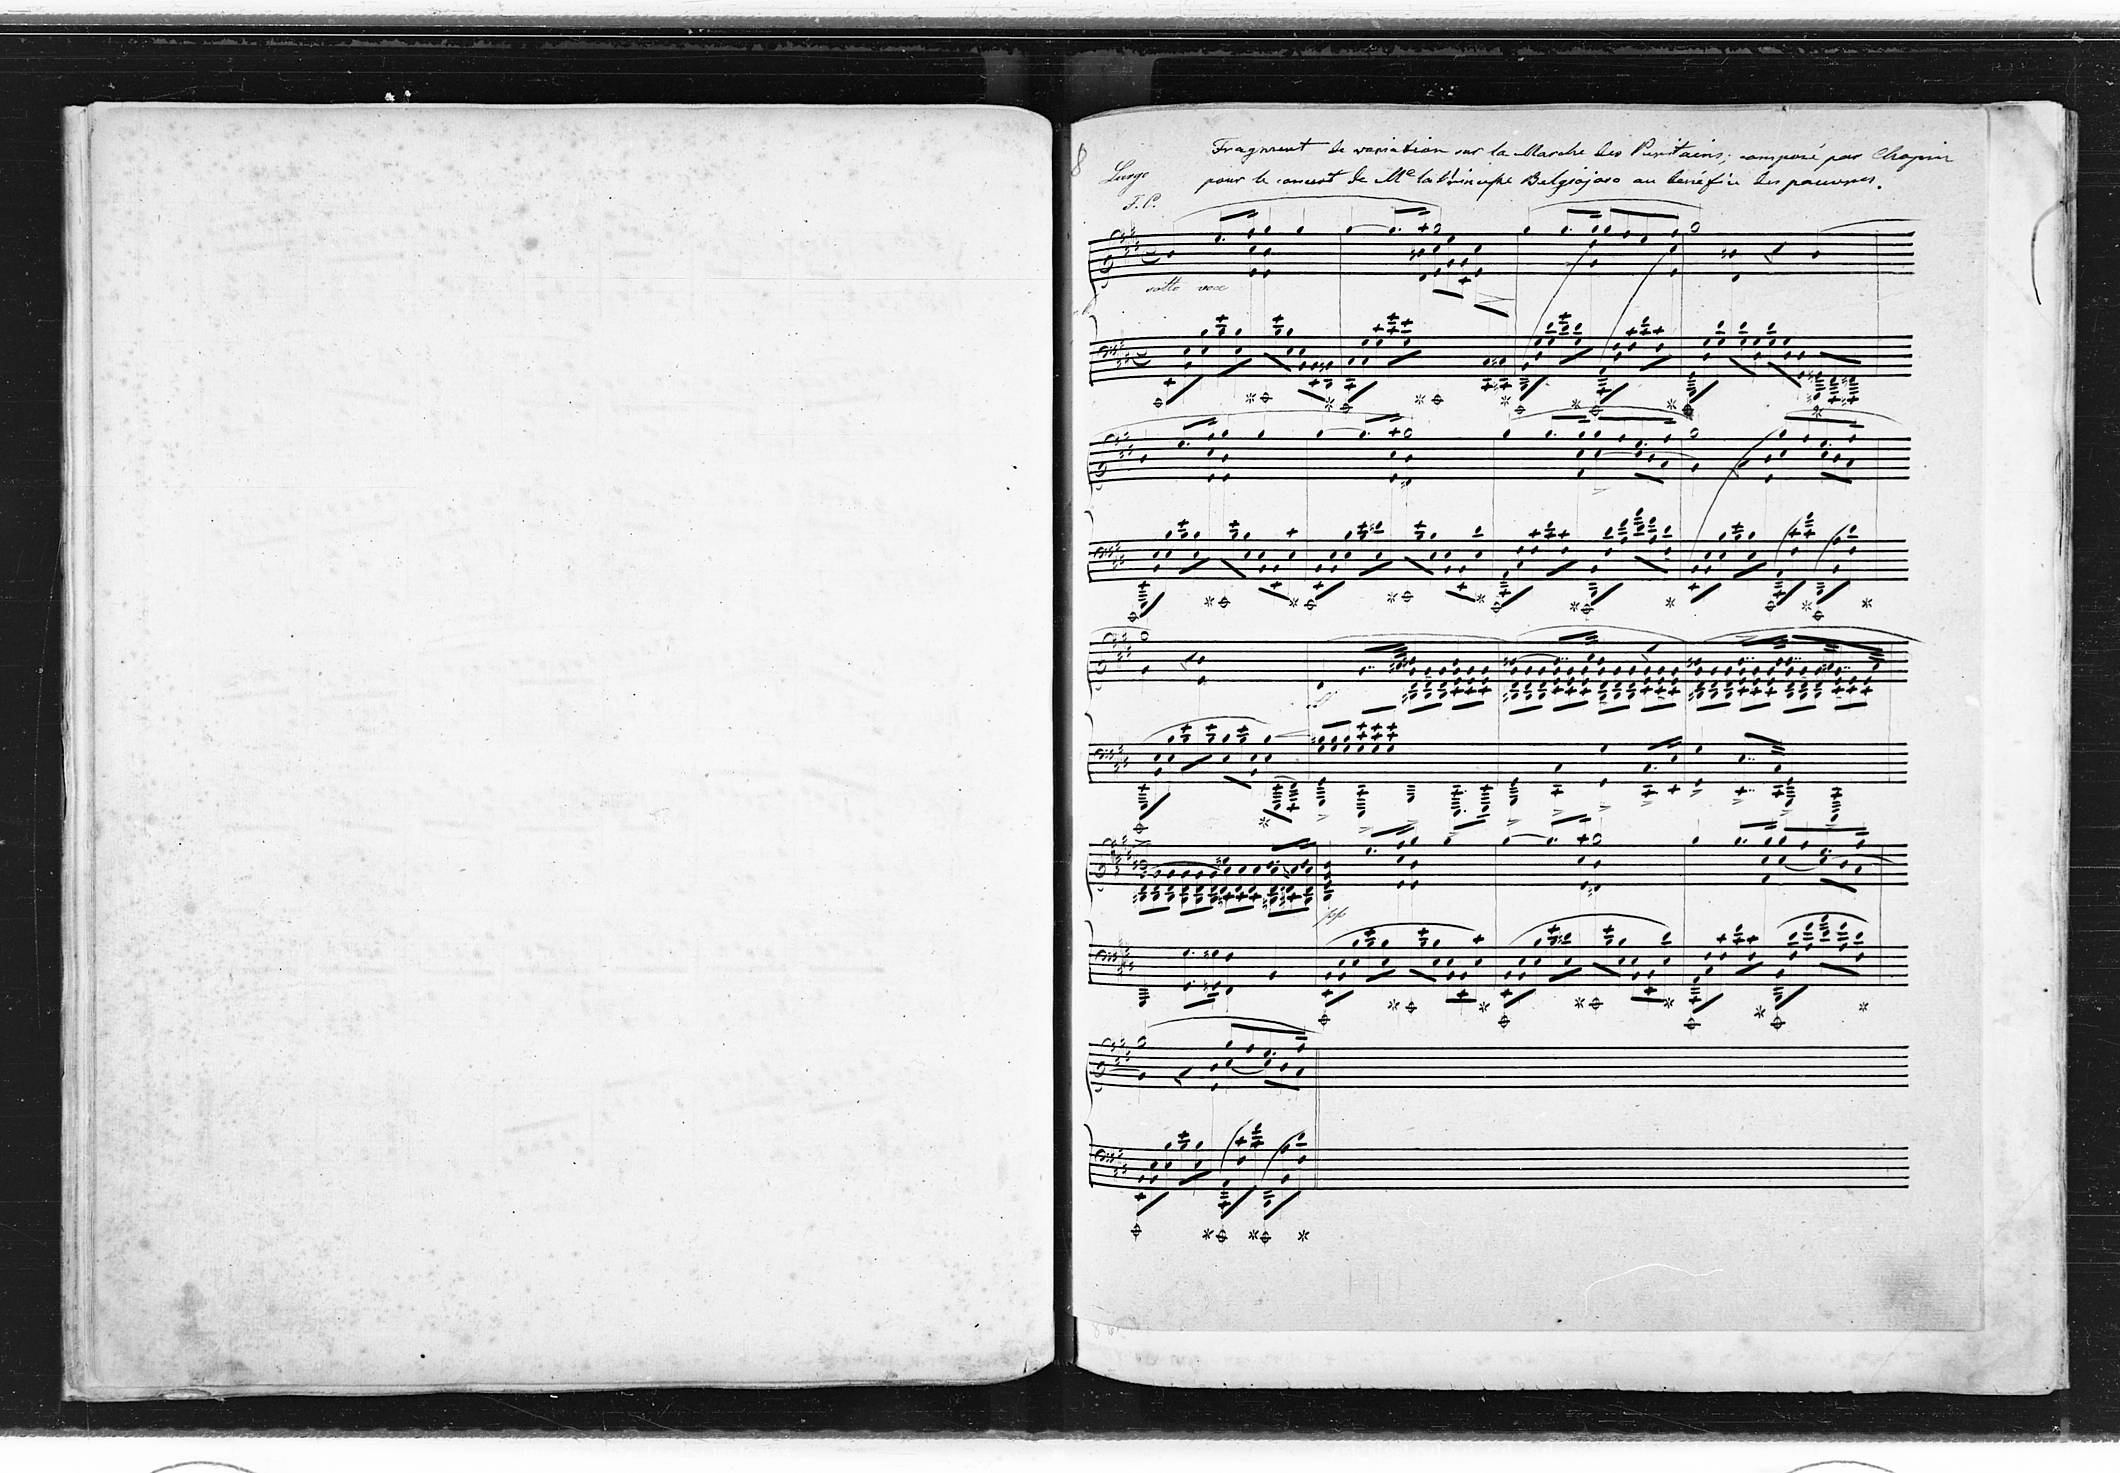 Fragment de variation sur la Marche des Puritains, composé par Chopin
Largo
pour le concert de Me la Princesse Belgiojoso au bénéfice des pauvres.
T. C.
sotto voce
pp